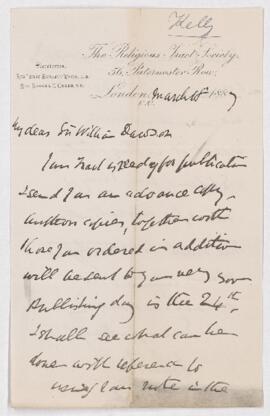 Kelly
The Religious Tract Society,
56, Paternoster Row,
London, March 18 1887
E.C.
My dear Sir William Dawson
Your Tract is ready for publication
I send you an advance copy.
Author's copies, together with
those you ordered in addition
will be sent to you very soon
Publishing day is the 24th.
I shall see what can be
done with reference to
using your note in the